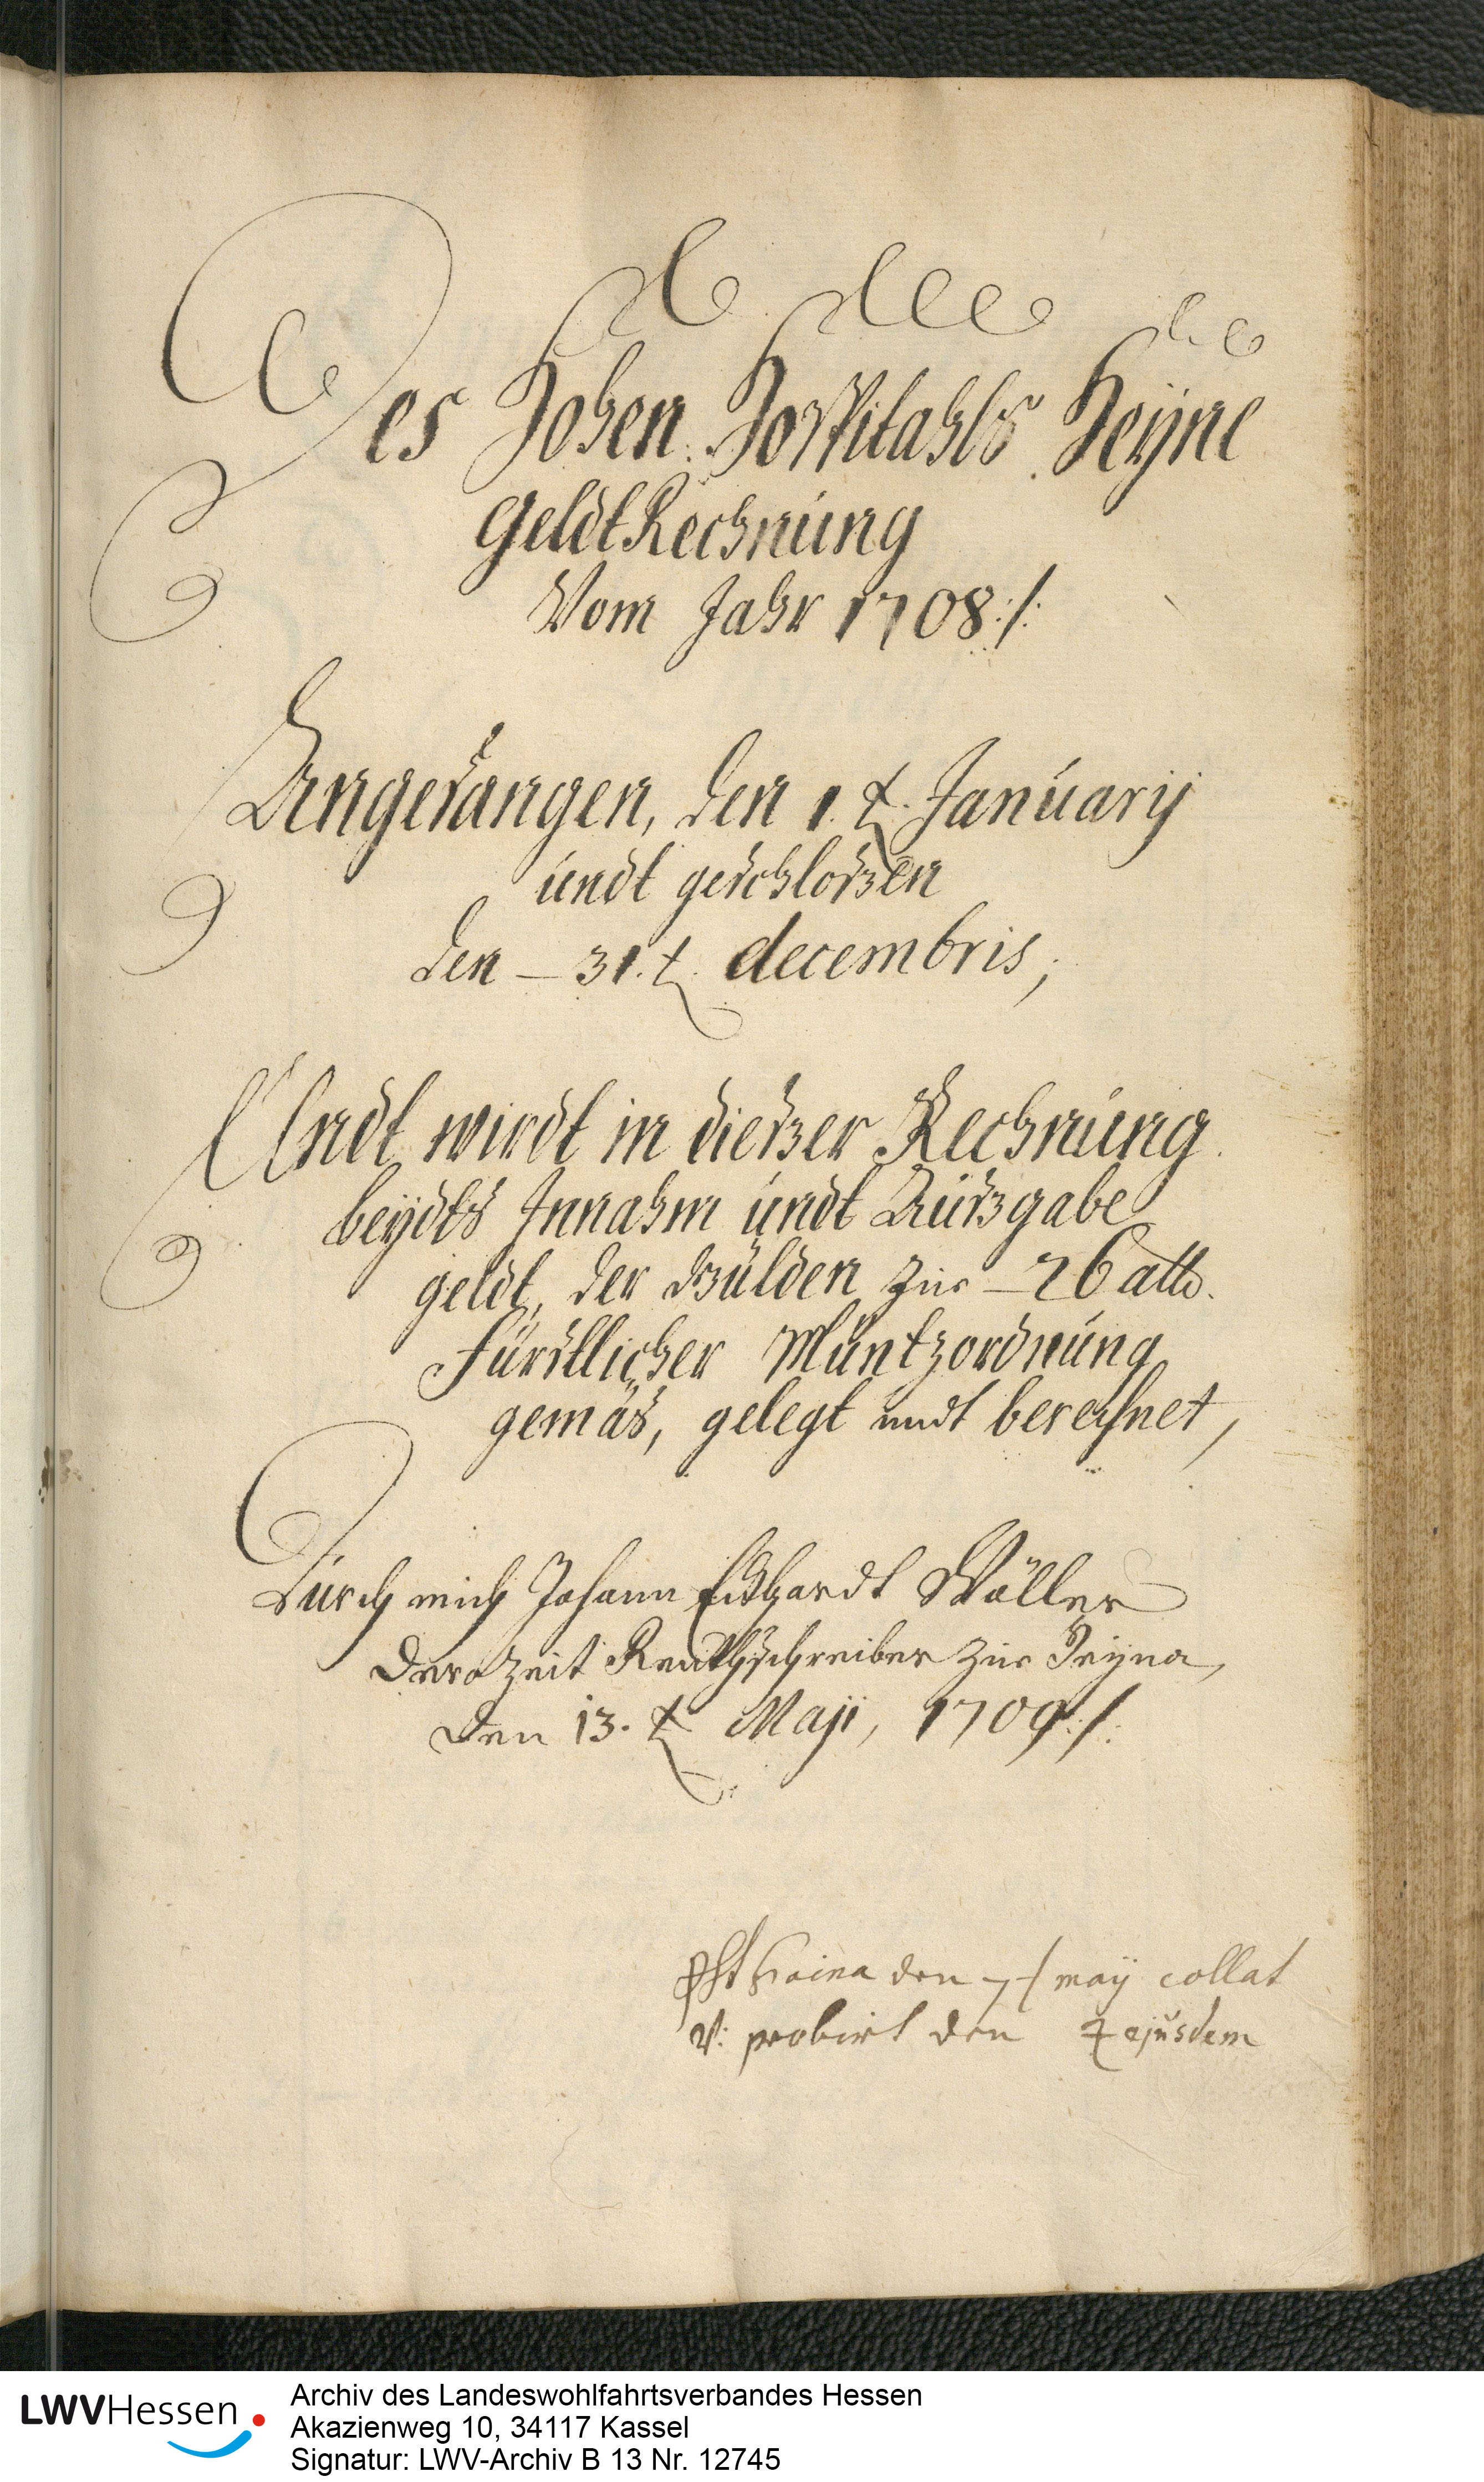 Des Hohen Hospitahls Heyne
Geldt Rechnung
Vom Jahr 1708 :/:
Angefangen, den 1.t. January
undt geschloßen
den – 31.t. decembris,
Undt wirdt in dießer Rechnung
beydes Innahm undt Außgabe
geldt, der Gulden zu – 26 alb.
Fürstlicher Müntzordnung
gemäs, gelegt undt berechnet,
Durch mich Johann Eckhardt Möller
Dero Zeit Renthschreiber zu Heyna,
Den 13.t Maji, 1709 :/:
Haina den 7 t may collat
v: probirt den t ejusdem
LWVHessen
Archiv des Landeswohlfahrtsverbandes Hessen
Akazienweg 10, 34117 Kassel
Signatur: LWV-Archiv B 13 Nr. 12745